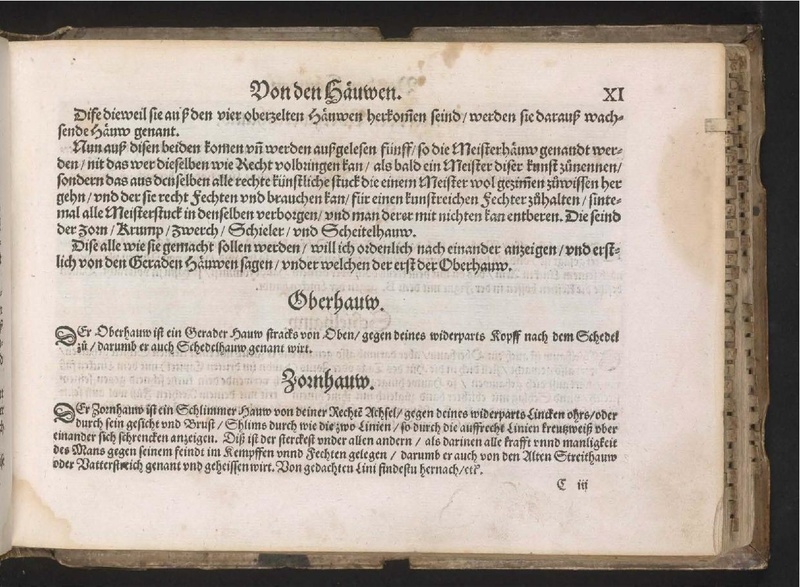 Von den Häuwen.
XI
Dise dieweil sie auß den vier oberzelten Häuwen herkom̃en seind / werden sie darauß wach-
sende Häuw genant.
Nun auß disen beiden komen vñ werden außgelesen fünff / so die Meisterhäuw genandt wer-
den / nit das wer dieselben wie Recht volbringen kan / als bald ein Meister diser kunst zůnennen /
sondern das aus denselben alle rechte künstliche stuck die einem Meister wol gezim̃en zůwissen her
gehn / vnd der sie recht Fechten vnd brauchen kan / für einen kunstreichen Fechter zůhalten / sinte-
mal alle Meisterstuck in denselben verborgen / vnd man derer mit nichten kan entberen. Die seind
der Zorn / Krump / Zwerch / Schieler / vnd Scheitelhauw.
Dise alle wie sie gemacht sollen werden / will ich ordenlich nach einander anzeigen / vnd erst-
lich von den Geraden Häuwen sagen / vnder welchen der erst der Oberhauw.
Oberhauw.
DEr Oberhauw ist ein Gerader Hauw stracks von Oben / gegen deines widerparts Kopff nach dem Schedel
zů / darumb er auch Schedelhauw genant wirt.
Zornhauw.
DEr Zornhauw ist ein Schlimmer Hauw von deiner Rechtẽ Achsel / gegen deines widerparts Lincken ohrs / oder
durch sein gesicht vnd Brust / Shlims durch wie die zwo Linien / so durch die auffrecht Linien kreutzweiß vber
einander sich schrencken anzeigen. Diß ist der sterckest vnder allen andern / als darinen alle krafft vnnd manligkeit
des Mans gegen seinem feindt im Kempffen vnnd Fechten gelegen / darumb er auch von den Alten Streithauw
oder Vatterstreich genant vnd geheissen wirt. Von gedachten Lini findestu hernach / etc.
C iij